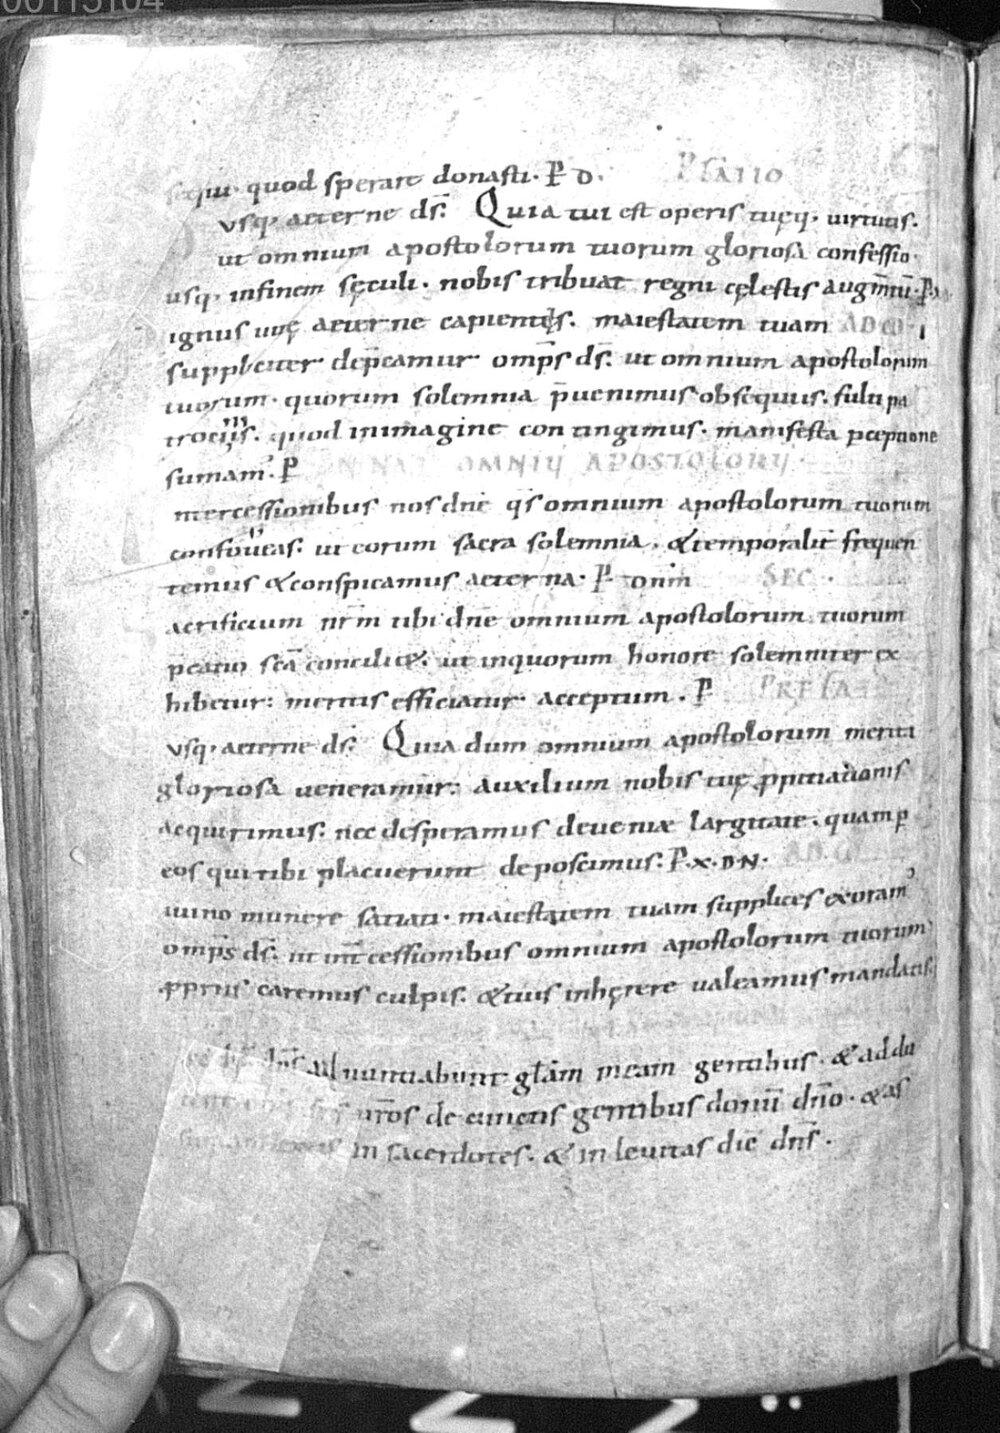 00113104
sequi quod sperare donasti. P D. PFATIO
vsq. aeterne ds̄. Quia tui est operis tuęq. uirtutis.
ut omnium apostolorum tuorum gloriosa confessio.
usq. infinem sęculi. nobis tribuat regni cęlestis augm̄tū. P
ignus uitę aeterne capientes. maiestatem tuam AD CO
suppliciter dep̄camur omp̄s ds̄. ut omnium apostolorum
tuorum. quorum solemnia p̄uenimus obsequiis. fulti pa
trociniis. quod inimagine contingimus. manifesta pceptione
sumam'. P IN NAT OMNIŪ APOSTOLORŪ.
ntercessionibus nos dn̄e qs̄ omnium apostolorum tuorum
confoueas. ut eorum sacra solemnia. & temporalit̄ frequen
temus & conspicamus aeterna. P dnm̄ SEC.
acrificium nr̄m tibi dn̄e omnium apostolorum tuorum
pcatio scā conciliet. ut inquorum honore solemniter ex
hibetur: meritis efficiatur acceptum. P PREFA
vsq. aeterne ds̄. Quia dum omnium apostolorum merita
gloriosa ueneramur: auxilium nobis tuę ppitiationis
aequirimus. nec desperamus deueniæ largitate. quam p
eos qui tibi placuerunt deposcimus. P. X. D. N. AD CO
iuino munere satiati. maiestatem tuam supplices exoram'
omp̄s ds̄. ut int̄cessionibus omnium apostolorum tuorum
ppriis caremus culpis. & tuis inhęrere ualeamus mandatis.
adnuntiabunt glām meam gentibus. & addu
frs̄ ur̄os de cunctis gentibus donū dn̄o. & as
sumam in sacerdotes. & in leuitas diē dn̄s.